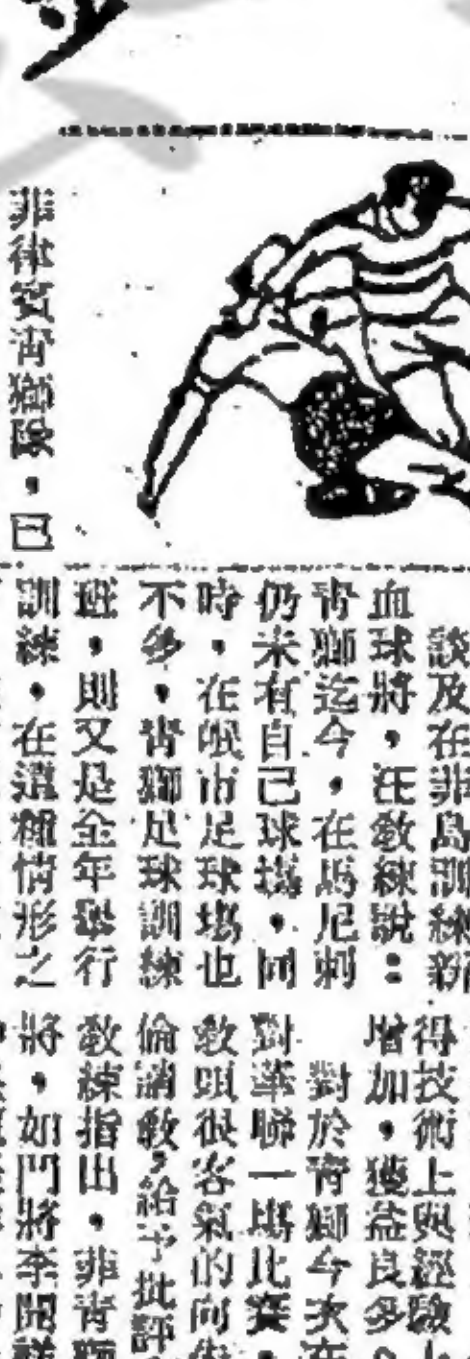 談及在非島訓練新
血球將，汪教練說：
青獅迄今，在馬尼剌
仍未有自己球塲，同
時，在岷市足球塲也
不多，青獅足球訓練
班，則又是全年舉行
訓練，在這種情形之
得技術上與經驗上
增加，獲益良多。
對於青獅今次在
對華聯一塲比賽，
教頭很客氣的向
倫請教，給予批評
教練指出，菲青獅
將，如門將李開
菲律賓青獅隊，已